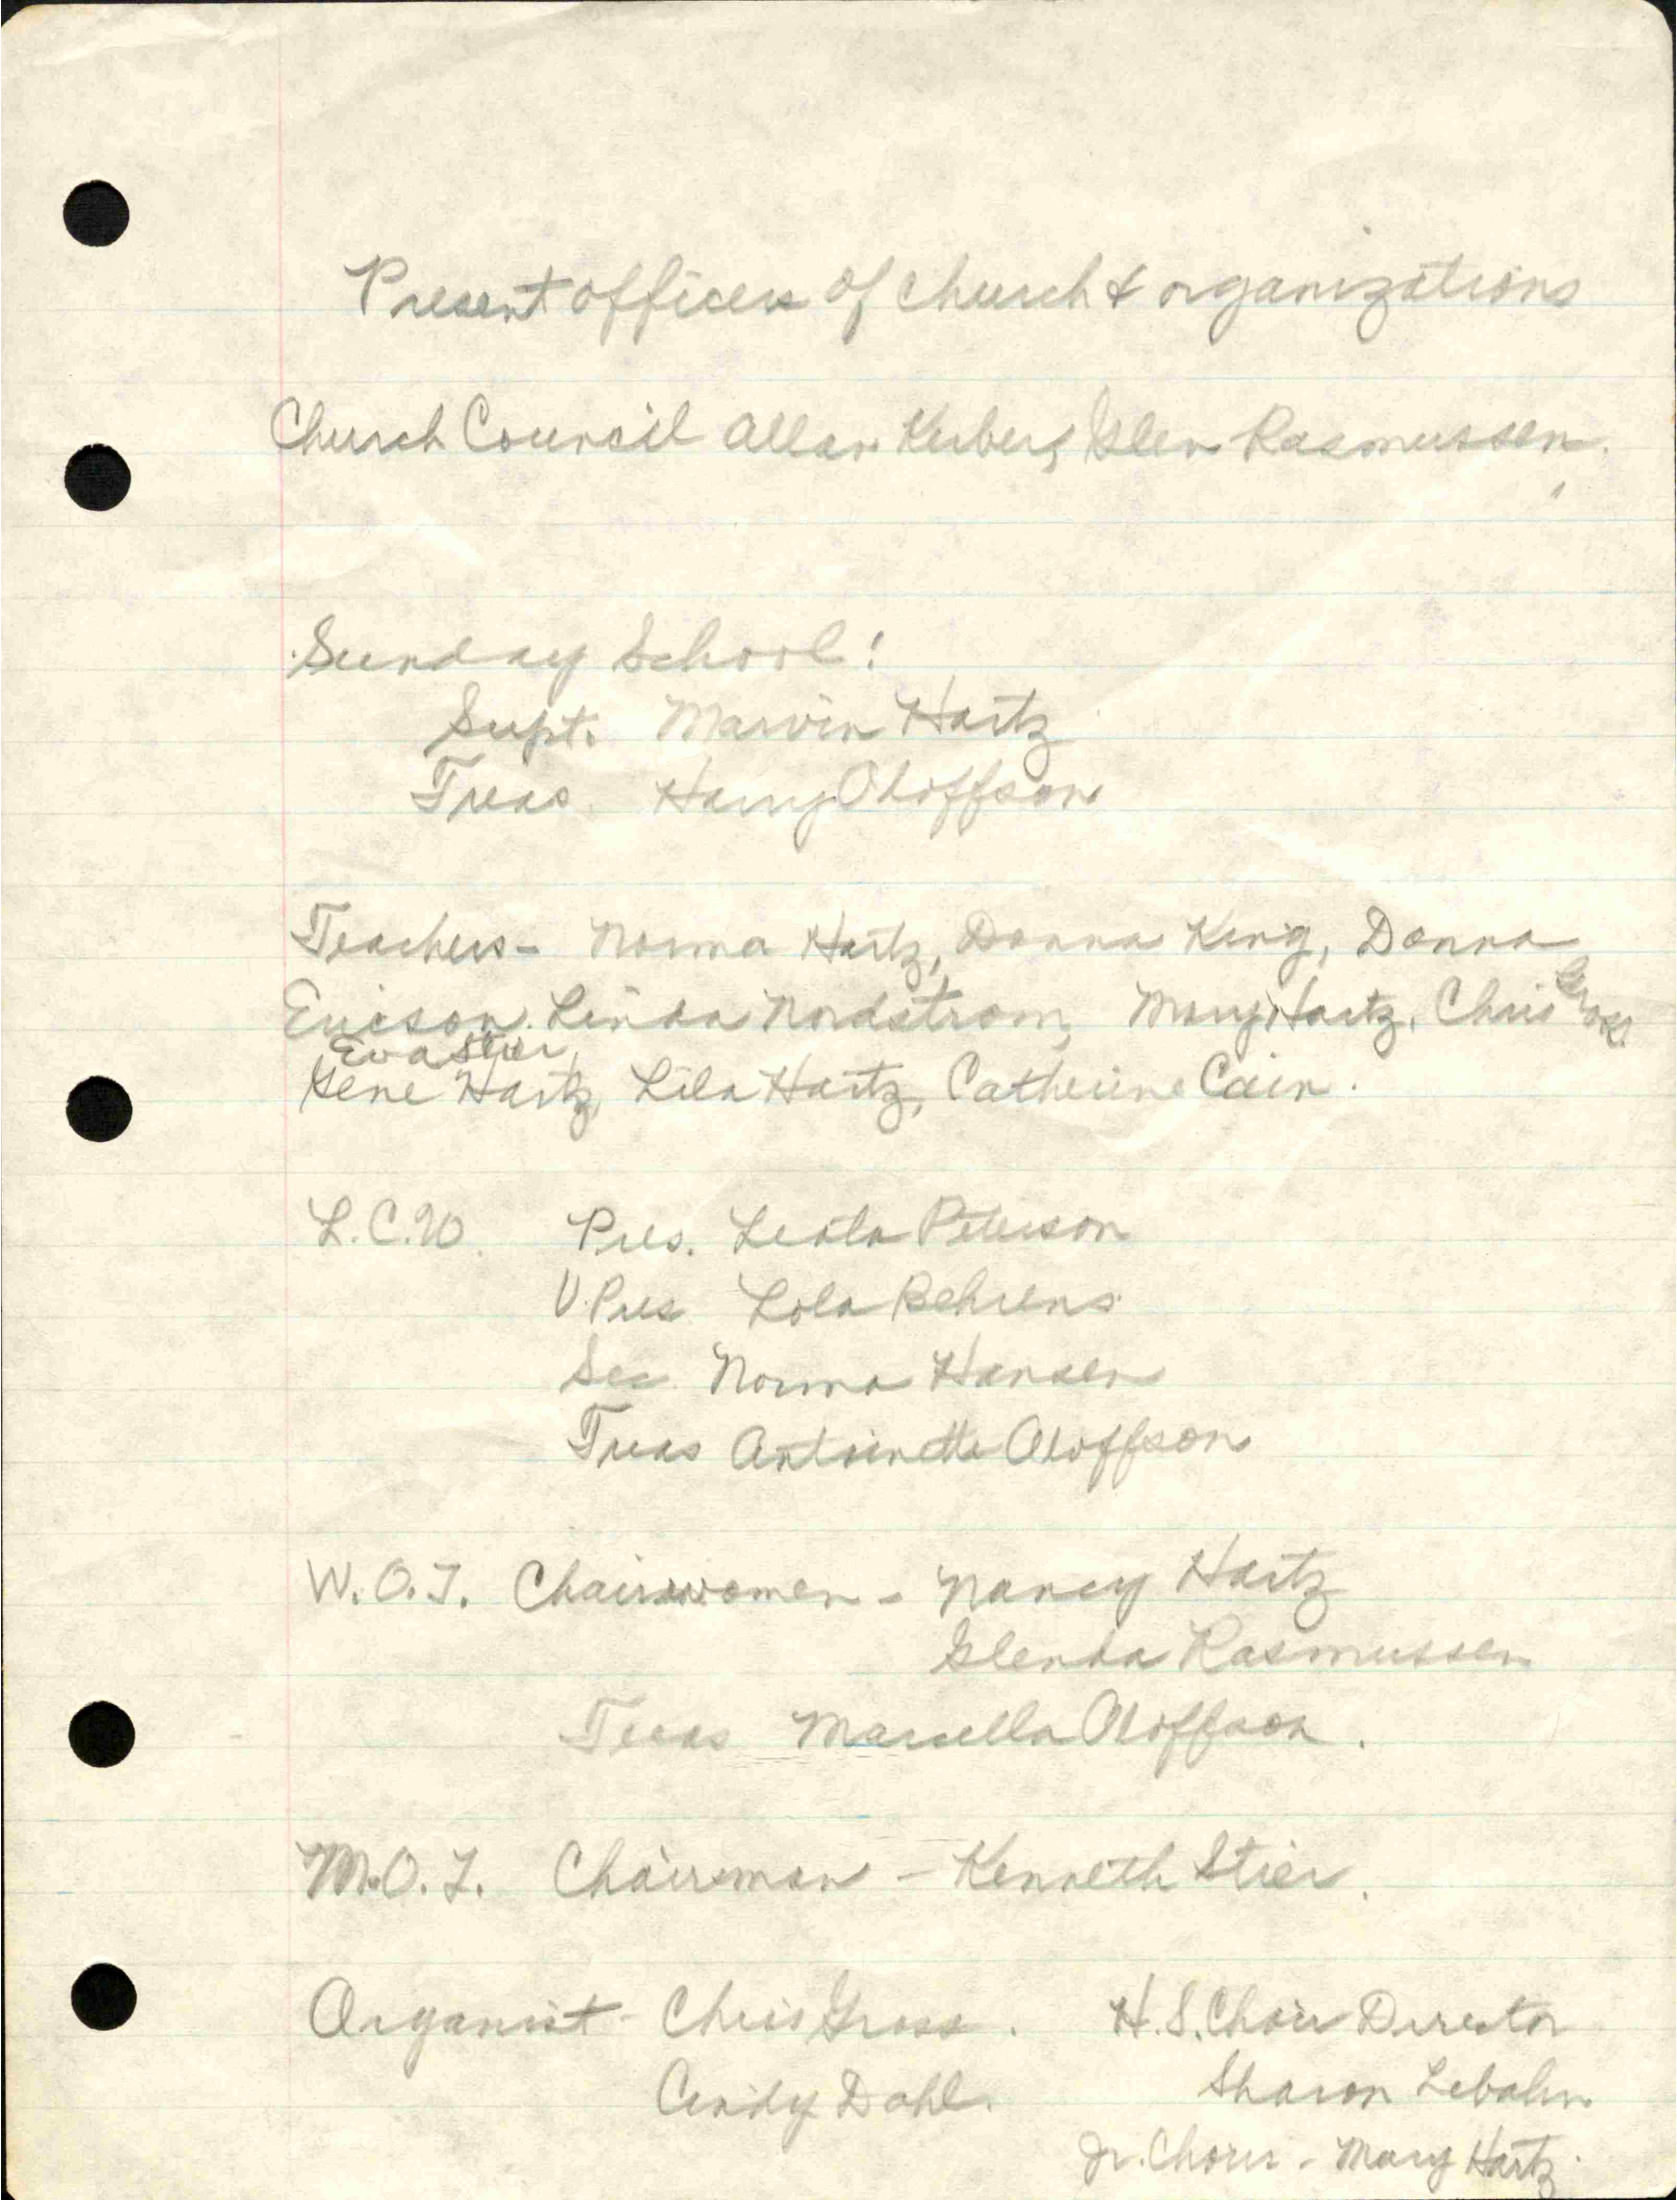 Present officers of church & organizations
Church Council Allan Kerberg Glen Rasmussen.
Sunday School:
Supt. Marvin Hartz
Treas. Harry Oloffson
Teachers - Norma Hartz, Donna King, Donna
Ericson. Linda Nordstrom, Mary Hartz, Chris Gross.
Eva Stier,
Gene Hartz, Lila Hartz, Catherine Cain.
L.C.W. Pres. Leola Peterson
V. Pres Lola Behrens
Sec. Norma Hansen
Treas Antoinette Oloffson
W.O.T. Chairwomen - Nancy Hartz
Glenda Rasmussen
Treas Marcella Oloffson.
M.O.T. Chairman - Kenneth Stier.
Organist - Chris Gross. H.S. Choir Director
Cindy Dahl. Sharon Lebahn
Jr. Choir - Mary Hartz.